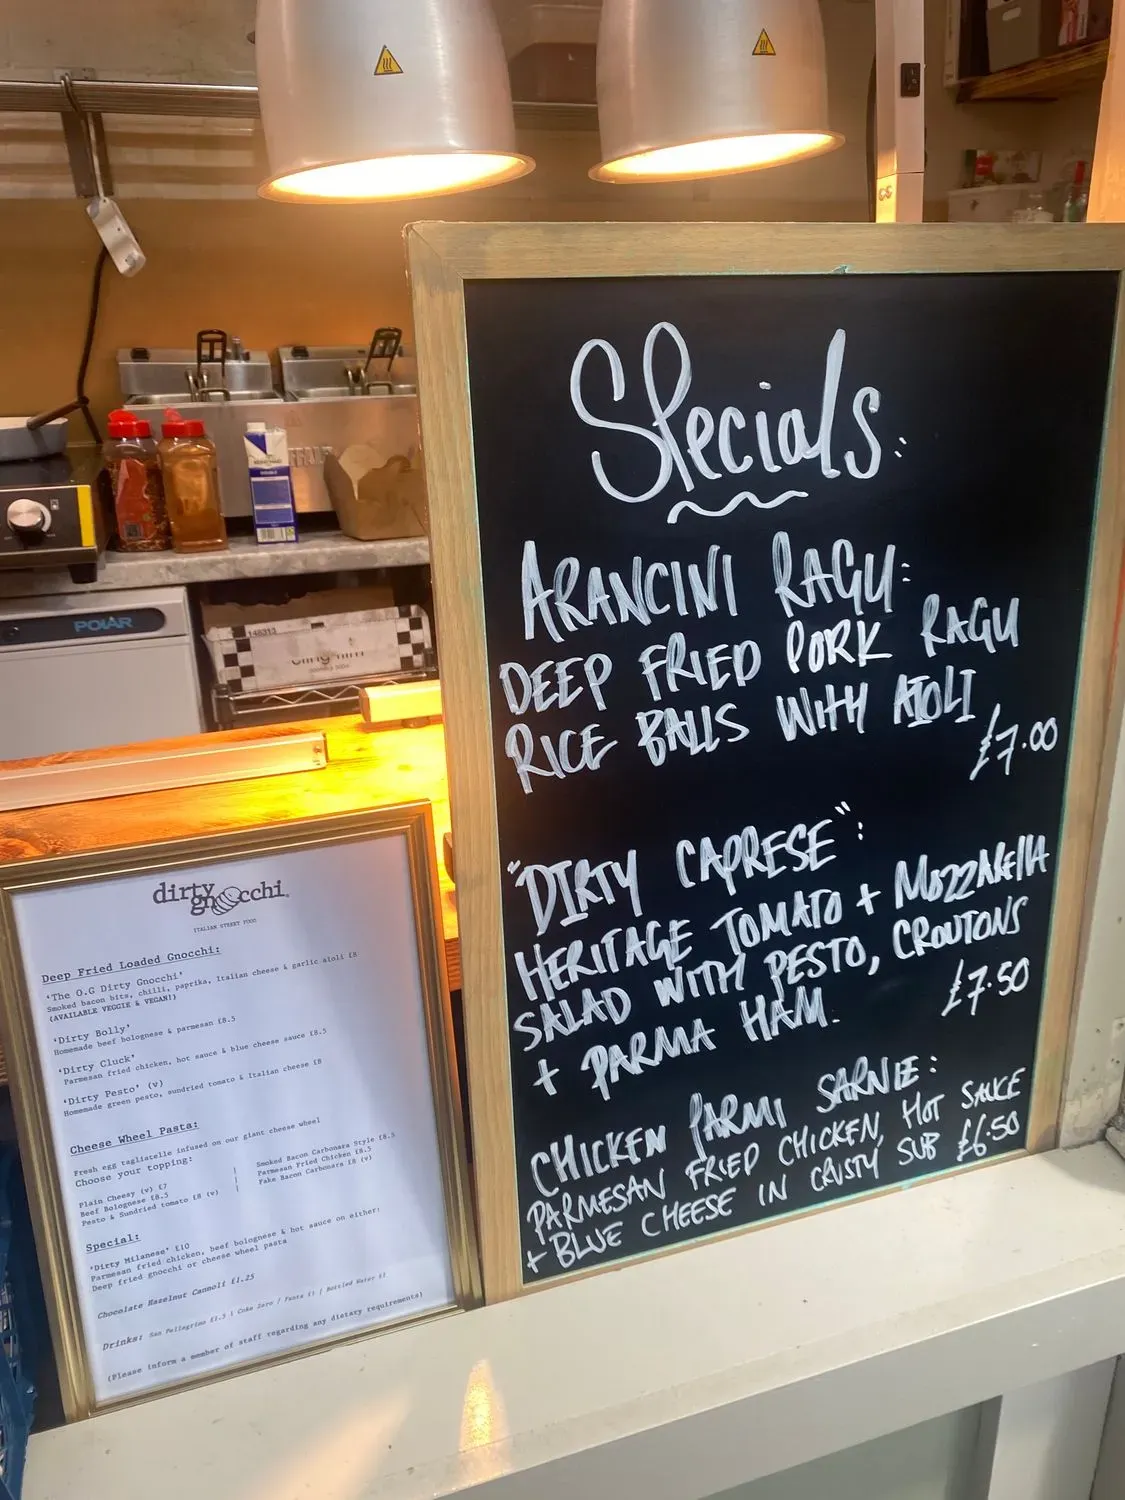 Specials:
ARANCINI RAGU:
DEEP FRIED PORK RAGU
RICE BALLS WITH AIOLI
£7.00
"DIRTY CAPRESE":
HERITAGE TOMATO + MOZZARELLA
SALAD WITH PESTO, CROUTONS
+ PARMA HAM.
£7.50
CHICKEN PARMI SARNIE:
PARMESAN FRIED CHICKEN, HOT SAUCE
+ BLUE CHEESE IN CRUSTY SUB £6.50
POLAR
148313
cling film
dirty
gnocchi
ITALIAN STREET FOOD
Deep Fried Loaded Gnocchi:
'The O.G Dirty Gnocchi'
Smoked bacon bits, chilli, paprika, Italian cheese & garlic aioli £8
(AVAILABLE VEGGIE & VEGAN!)
'Dirty Bolly'
Homemade beef bolognese & parmesan £8.5
'Dirty Cluck'
Parmesan fried chicken, hot sauce & blue cheese sauce £8.5
'Dirty Pesto' (v)
Homemade green pesto, sundried tomato & Italian cheese £8
Cheese Wheel Pasta:
Fresh egg tagliatelle infused on our giant cheese wheel
Choose your topping:
Plain Cheesy (v) £7
Beef Bolognese £8.5
Pesto & Sundried tomato £8 (v)
Smoked Bacon Carbonara Style £8.5
Parmesan Fried Chicken £8.5
Fake Bacon Carbonara £8 (v)
Special:
'Dirty Milanese' £10
Parmesan fried chicken, beef bolognese & hot sauce on either:
Deep fried gnocchi or cheese wheel pasta
Chocolate Hazelnut Cannoli £1.25
Drinks: San Pellegrino £1.5 | Coke Zero / Fanta £1 | Bottled Water £1
(Please inform a member of staff regarding any dietary requirements)